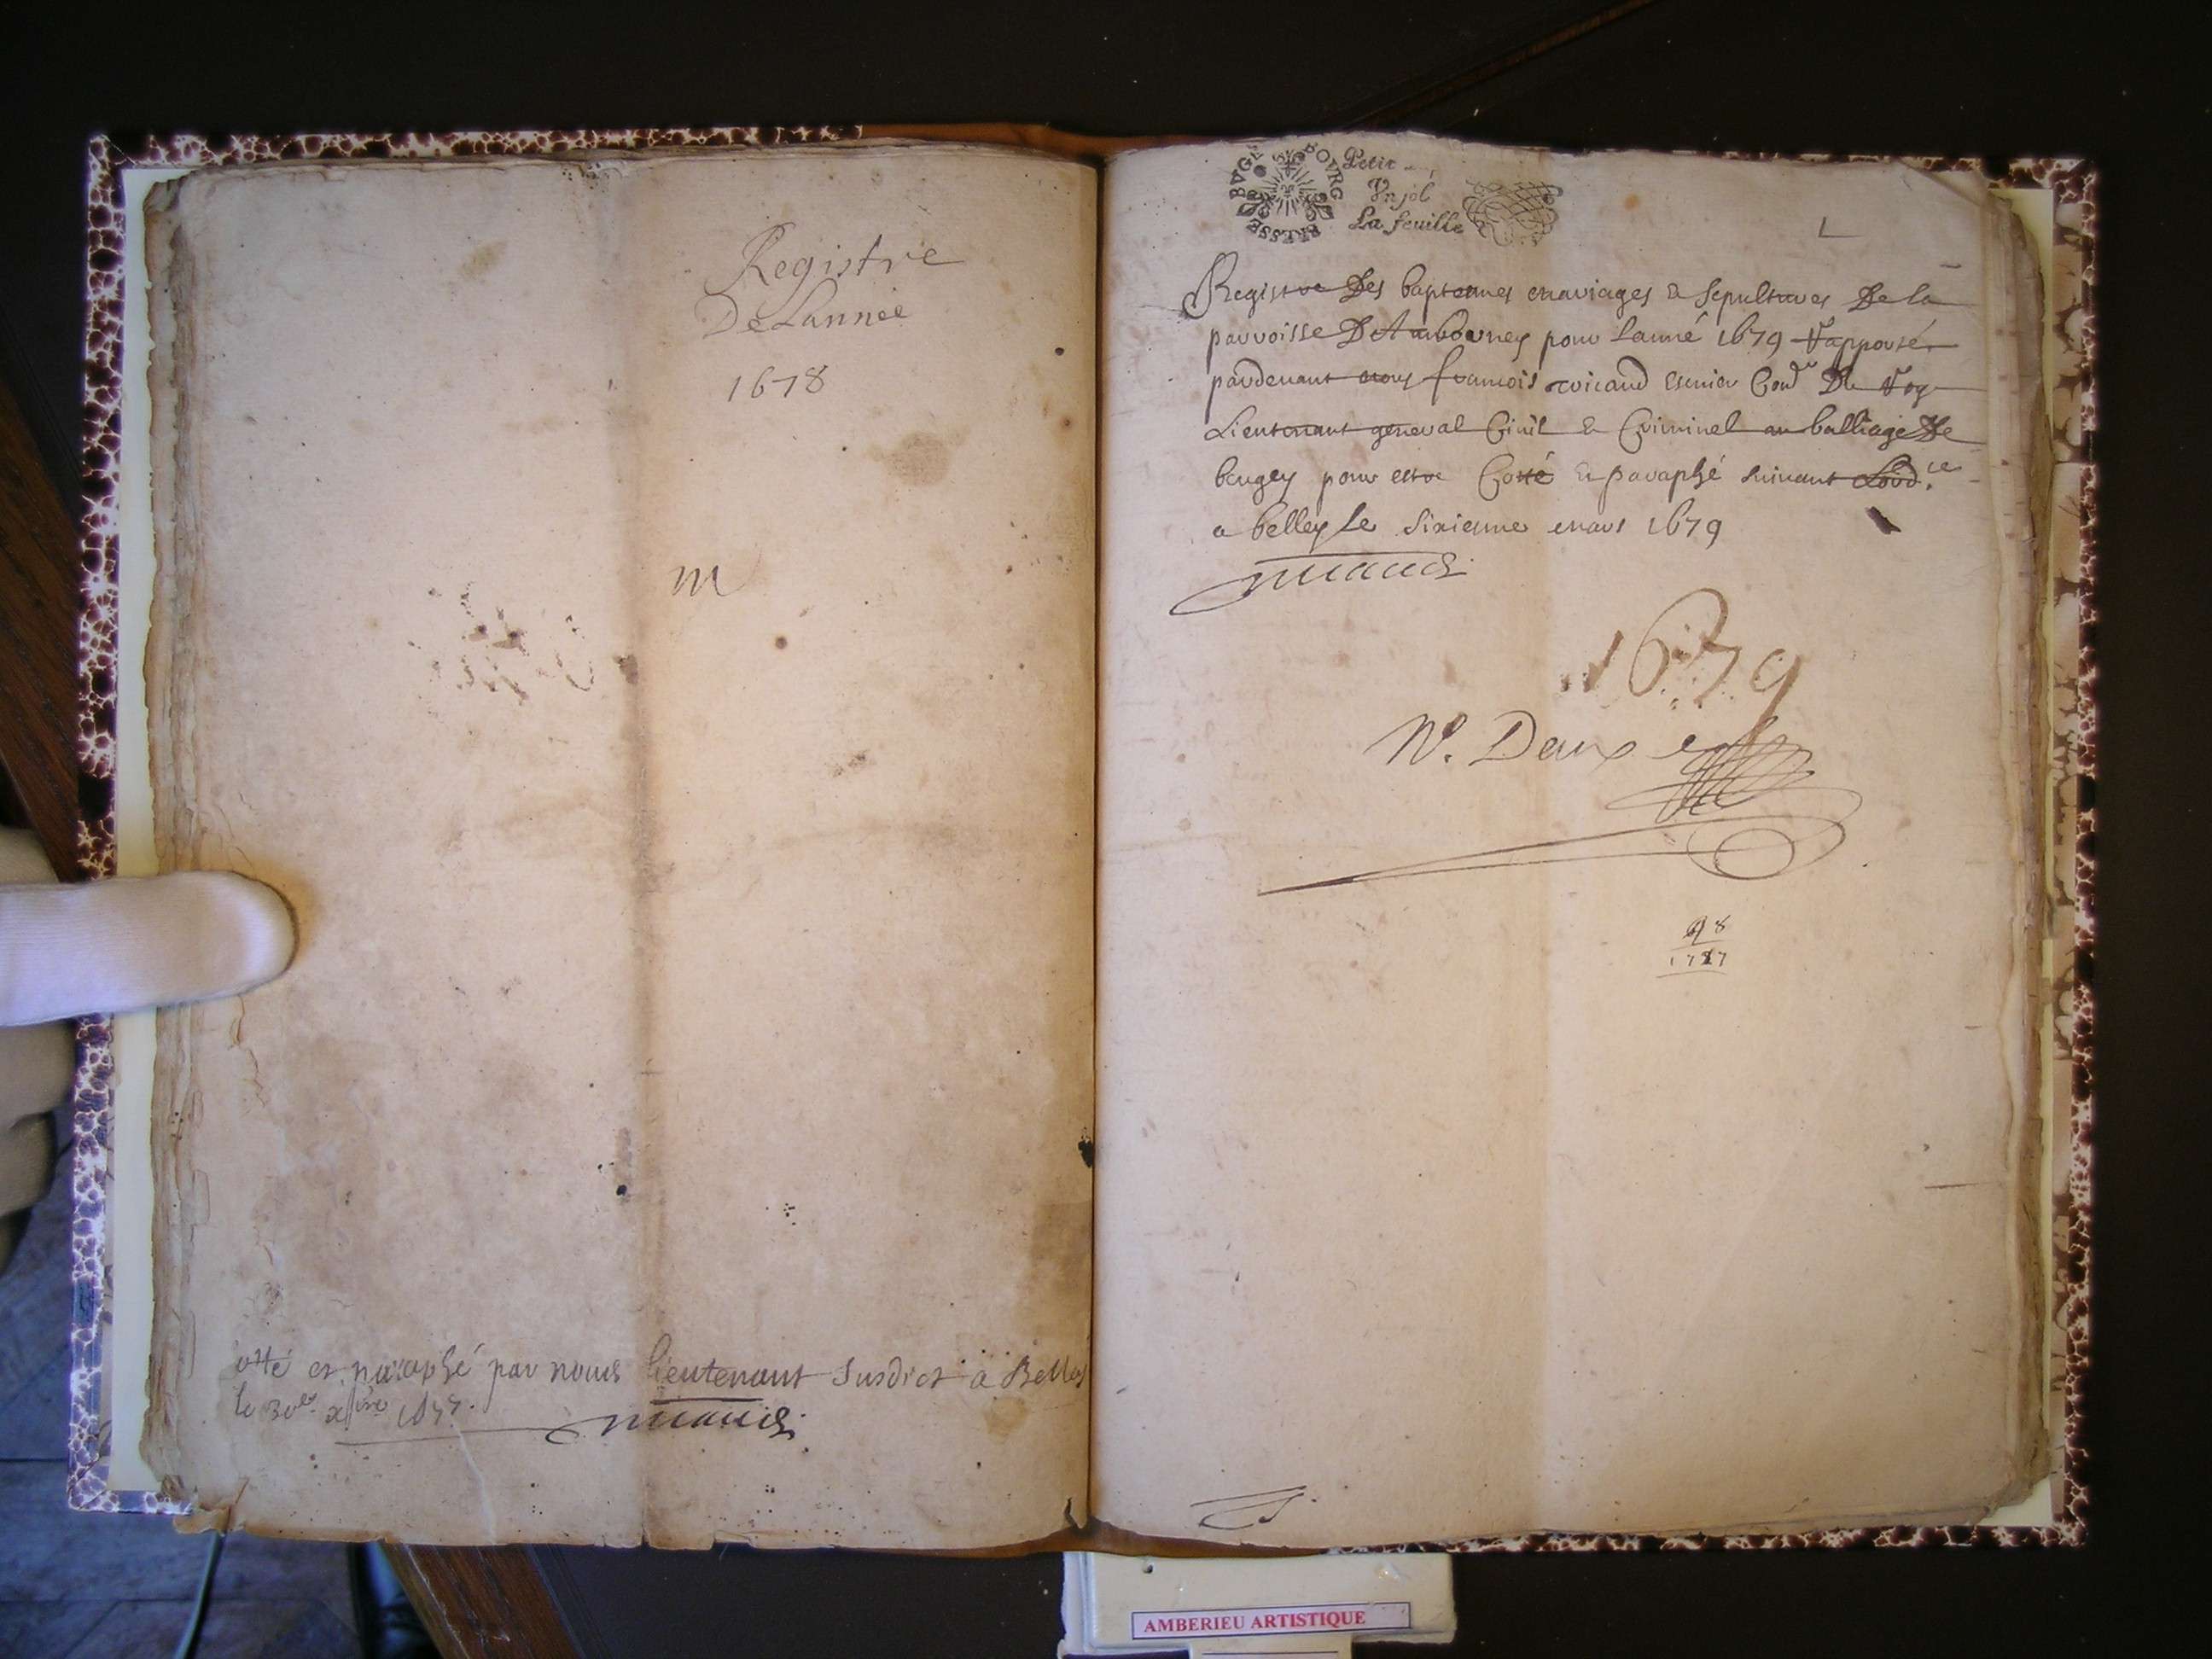 Registre
De Lannee
1678
m
otté et paraphé par nous lieutenant susdict a Belley
le 30e xbre 1677.
BVGEY BOVRG BRESSE
Petit
Vn sol
La feuille
Registre Des baptemes mariages & sepultures De la
parroisse D'Ambourney pour lanné 1679 Rapporté
pardevant nous francois escuier Con.r Du Roy
Lieutenant general Civil & Criminel au balliage De
beugey pour estre Cotté & paraphé suivant Lord.ce
a belley le sixiesme mars 1679
1679
N°. Deux
98
1787
AMBERIEU ARTISTIQUE